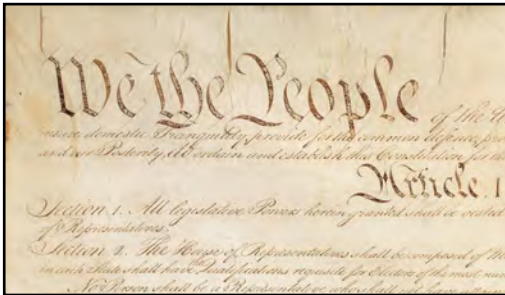 We the People of the U
insure domestic Tranquility, provide for the common defence, pro
and our Posterity, do ordain and establish this Constitution for the
Article. I
Section. 1. All legislative Powers herein granted shall be vested
of Representatives.
Section. 2. The House of Representatives shall be composed of Me
in each State shall have the Qualifications requisite for Electors of the most num
No Person shall be a Representative who shall not have attain